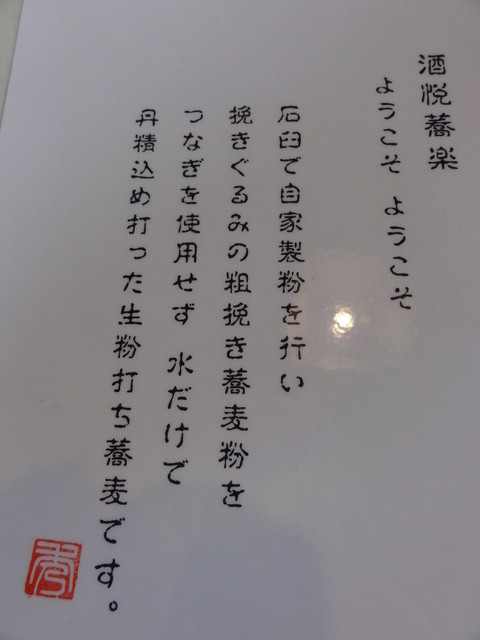 酒悦蕎楽
ようこそ ようこそ
石臼で自家製粉を行い
挽きぐるみの粗挽き蕎麦粉を
つなぎを使用せず 水だけで
丹精込め打った生粉打ち蕎麦です。